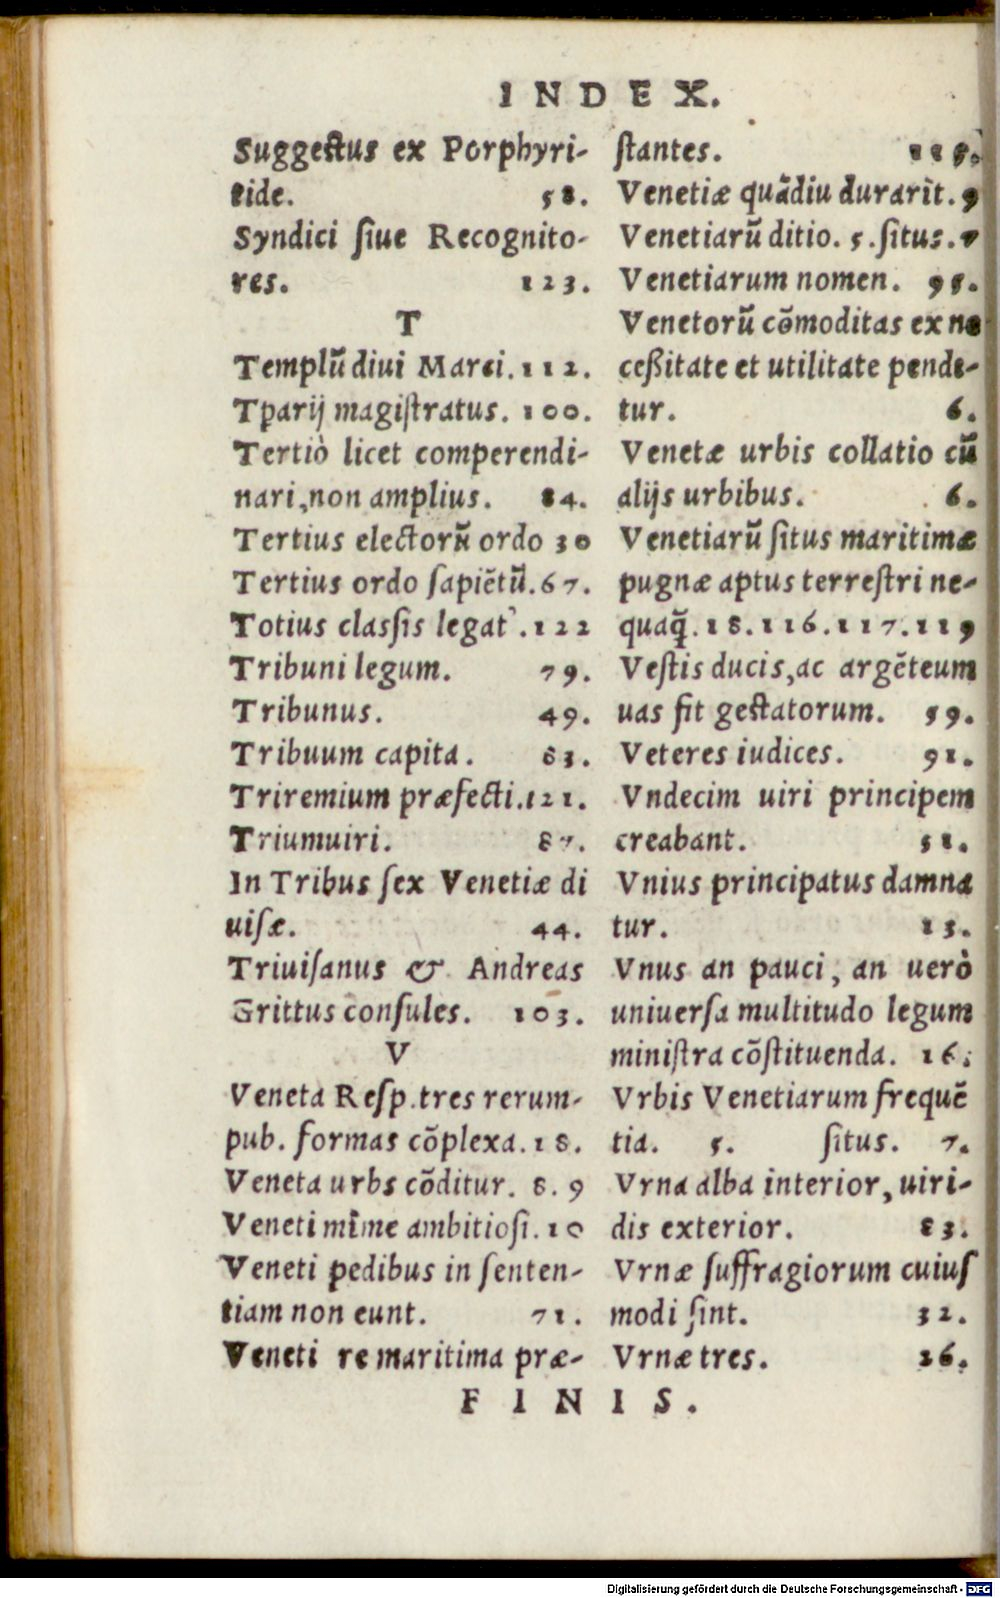 INDEX.
Suggestus ex Porphyri-
tide. 58.
Syndici siue Recognito-
res. 123.
T
Templũ diui Marci. 112.
Tparij magistratus. 100.
Tertiò licet comperendi-
nari, non amplius. 84.
Tertius electorũ ordo 30
Tertius ordo sapiẽtũ. 67.
Totius classis legat'. 122
Tribuni legum. 79.
Tribunus. 49.
Tribuum capita. 83.
Triremium præfecti. 121.
Triumuiri. 87.
In Tribus sex Venetiæ di
uisæ. 44.
Triuisanus & Andreas
Grittus consules. 103.
V
Veneta Resp. tres rerum-
pub. formas cõplexa. 18.
Veneta urbs cõditur. 8. 9
Veneti mĩme ambitiosi. 10
Veneti pedibus in senten-
tiam non eunt. 71.
Veneti re maritima præ-
stantes.
Venetiæ quãdiu durarìt. 9
Venetiarũ ditio. 5. situs.
Venetiarum nomen. 95.
Venetorũ cõmoditas ex ne
ceßitate et utilitate pende-
tur. 6.
Venetæ urbis collatio cũ
alijs urbibus. 6.
Venetiarũ situs maritimæ
pugnæ aptus terrestri ne-
quaq̃. 18. 116. 117. 119
Vestis ducis, ac argẽteum
uas fit gestatorum. 59.
Veteres iudices. 91.
Vndecim uiri principem
creabant. 51.
Vnius principatus damna
tur. 13.
Vnus an pauci, an uerò
uniuersa multitudo legum
ministra cõstituenda. 16.
Vrbis Venetiarum frequẽ
tia. 5. situs. 7.
Vrna alba interior, uiri-
dis exterior. 83.
Vrnæ suffragiorum cuius
modi sint. 32.
Vrnæ tres. 26.
FINIS.
Digitalisierung gefördert durch die Deutsche Forschungsgemeinschaft - DFG